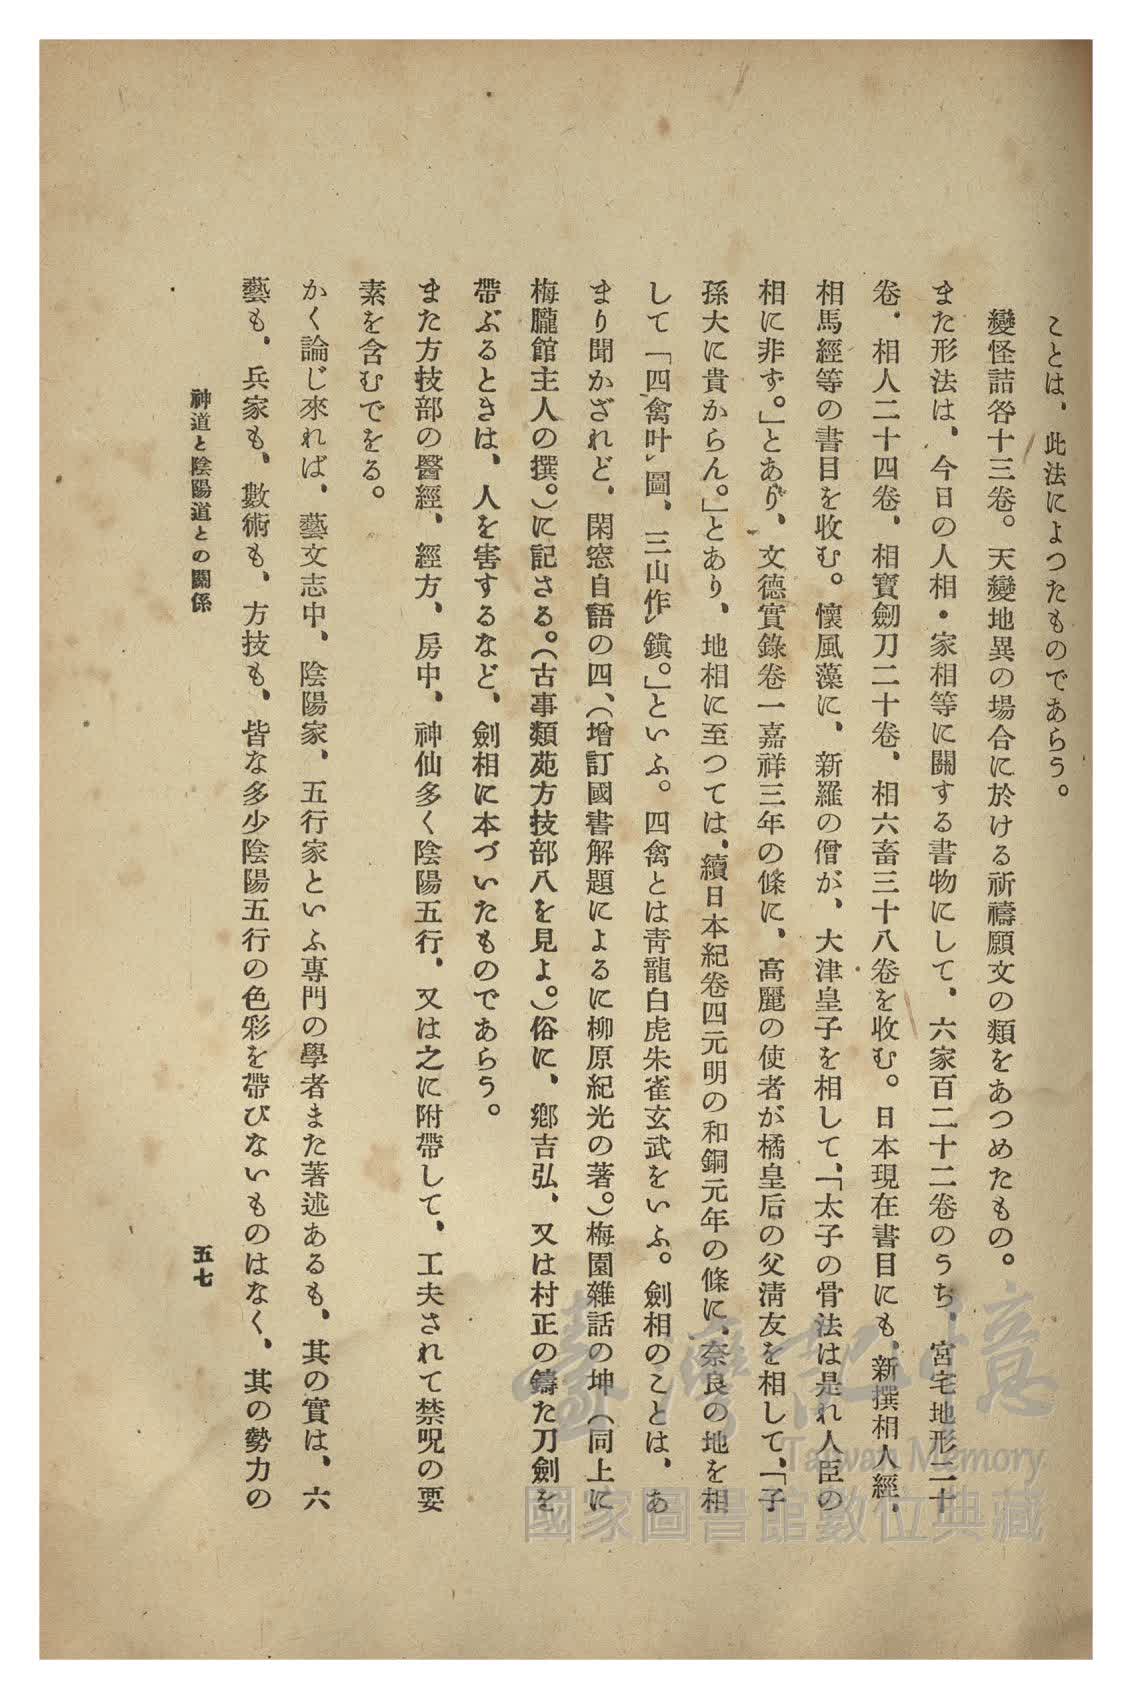 ことは、此法によつたものであらう。
變怪詰咎十三卷。天變地異の場合に於ける祈禱願文の類をあつめたもの。
また形法は、今日の人相・家相等に關する書物にして、六家百二十二卷のうち、宮宅地形二十
卷、相人二十四卷、相寶劒刀二十卷、相六畜三十八卷を收む。日本現在書目にも、新撰相人經、
相馬經等の書目を收む。懷風藻に、新羅の僧が、大津皇子を相して、「太子の骨法は是れ人臣の
相に非ず。」とあり、文德實錄卷一嘉祥三年の條に、高麗の使者が橘皇后の父淸友を相して、「子
孫大に貴からん。」とあり、地相に至つては、續日本紀卷四元明の和銅元年の條に、奈良の地を相
して「四禽叶レ圖、三山作レ鎭。」といふ。四禽とは靑龍白虎朱雀玄武をいふ。劍相のことは、あ
まり聞かざれど、閑窓自語の四、(增訂國書解題によるに柳原紀光の著。)梅園雜話の坤(同上に
梅朧館主人の撰。)に記さる。(古事類苑方技部八を見よ。)俗に、鄕吉弘、又は村正の鑄た刀劍を
帶ぶるときは、人を害するなど、劍相に本づいたものであらう。
また方技部の醫經、經方、房中、神仙多く陰陽五行、又は之に附帶して、工夫されて禁呪の要
素を含むでをる。
かく論じ來れば、藝文志中、陰陽家、五行家といふ專門の學者また著述あるも、其の實は、六
藝も、兵家も、數術も、方技も、皆な多少陰陽五行の色彩を帶びないものはなく、其の勢力の
神道と陰陽道との關係
五七
臺灣記憶
Taiwan Memory
國家圖書館數位典藏